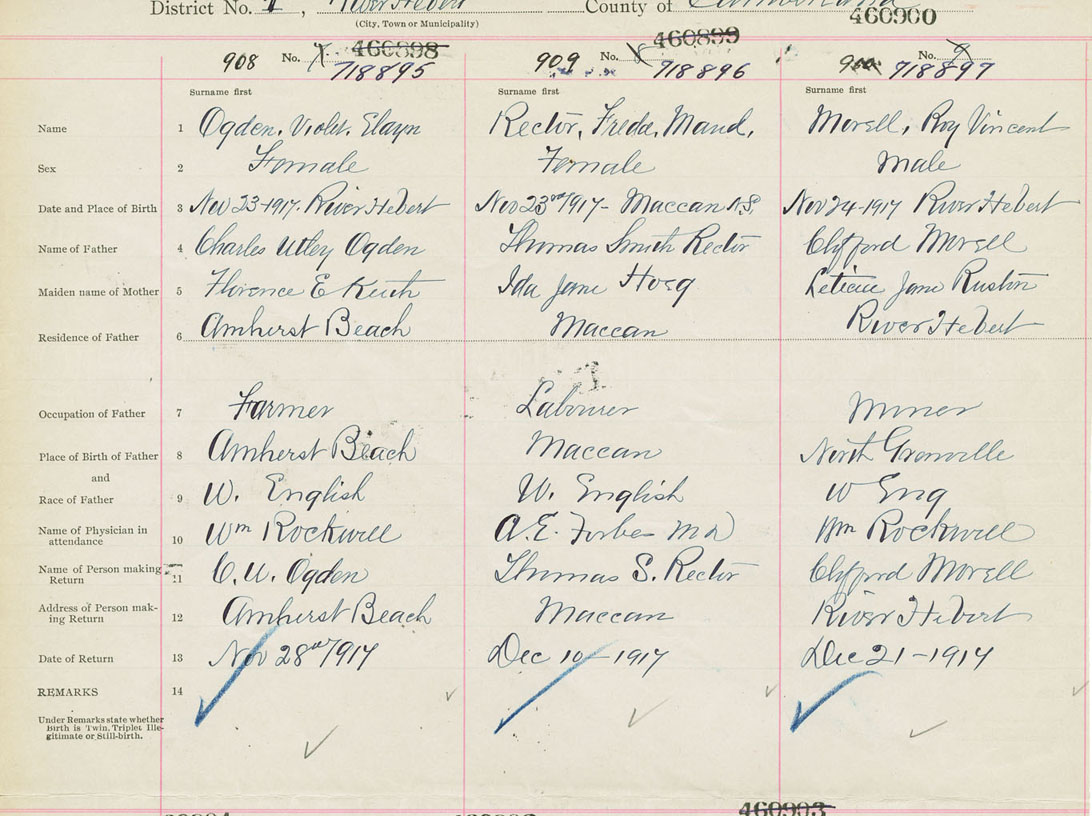 District No. 1, River Hebert County of Cumberland
(City, Town or Municipality)
460900
908 No. 7 460898 909 No. 8 460899 No. 9
718895 718896 718897
Surname first Surname first Surname first
Name 1 Ogden, Violet, Elayn Rector, Freda, Maud, Morell, Roy Vincent
Sex 2 Female Female Male
Date and Place of Birth 3 Nov 23-1917. River Hebert Nov 23rd/1917- Maccan N.S. Nov 24-1917 River Hebert
Name of Father 4 Charles Utley Ogden Thomas Smith Rector Clifford Morell
Maiden name of Mother 5 Florence E Keith Ida Jane Hoeg Jane Ruston
Residence of Father 6 Amherst Beach Maccan River Hebert
Occupation of Father 7 Farmer Labourer Miner
Place of Birth of Father 8 Amherst Beach Maccan North Granville
and
Race of Father 9 W. English W. English W Eng
Name of Physician in attendance 10 Wm Rockwell A.E. Forbes MD Wm Rockwell
Name of Person making Return 11 C.U. Ogden Thomas S. Rector Clifford Morell
Address of Person mak-
ing Return 12 Amherst Beach Maccan River Hebert
Date of Return 13 Nov 28th/1917 Dec 10-1917 Dec 21-1917
REMARKS 14
Under Remarks state whether
Birth is Twin, Triplet Ille-
gitimate or Still-birth.
460903